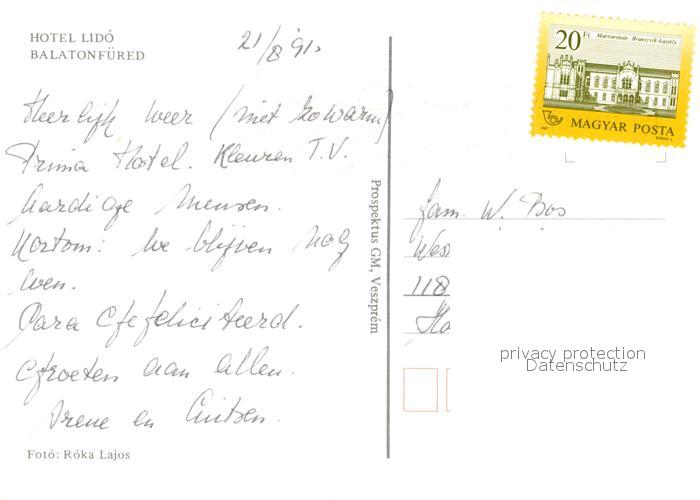 HOTEL LIDÓ
BALATONFÜRED
21/8 '91.
Heerlijk weer (niet zo warm)
Prima Hotel. Kleuren T.V.
Aardige mensen.
Kortom: we blijven nog
even.
Cara Gefeliciteerd.
Groeten aan allen.
Irene en
Fotó: Róka Lajos
Prospektus GM, Veszprém
20 Ft
Martonvásár, Brunszvik-kastély
MAGYAR POSTA
fam. W. Bos
118
privacy protection
Datenschutz